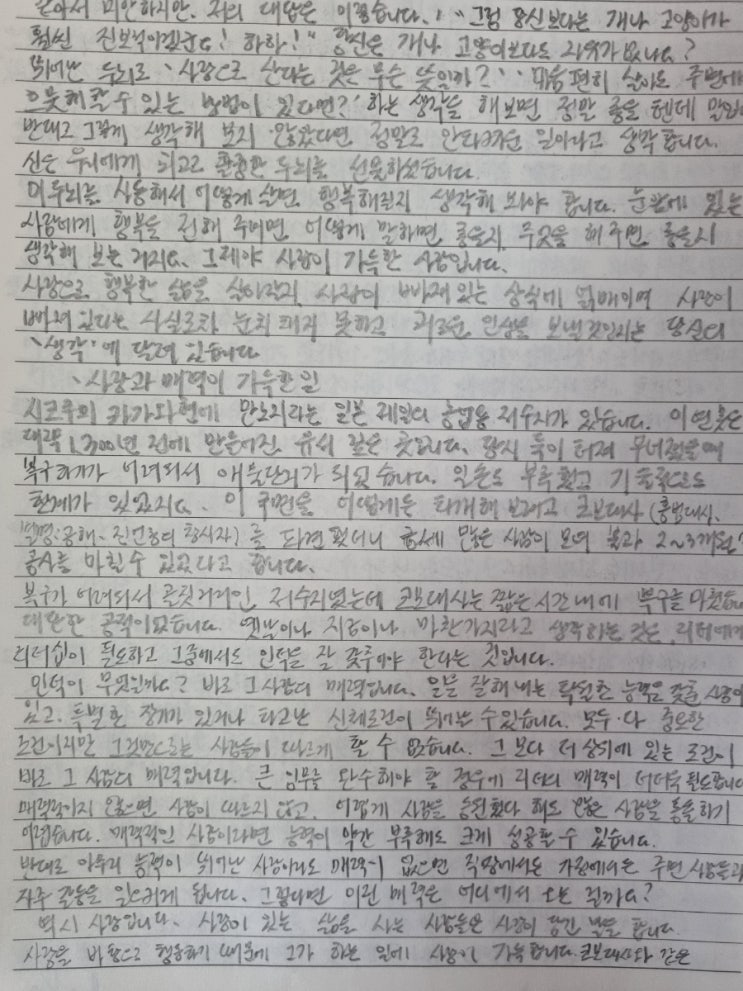 미안하지만, 저의 대답은 이렇습니다. "그럼 당신보다는 개나 고양이가
훨씬 진보적이겠군요! 하하!" 당신은 개나 고양이보다도 지혜가 없나요?
뛰어난 두뇌로 '사랑으로 산다는 것은 무슨 뜻일까?' '마음 편히 살아도 주변에
할 수 있는 방법이 있다면?' 하는 생각을 해보면 정말 좋을 텐데 말이
반대로 그렇게 생각해 보지 않았다면 정말로 안타까운 일이라고 생각합니다.
신은 우리에게 최고로 훌륭한 두뇌를 선물하셨습니다.
이 두뇌를 사용해서 어떻게 살면 행복해질지 생각해 봐야 합니다. 눈앞에 있는
사람에게 행복을 전해 주려면 어떻게 말하면 좋을지 무엇을 해주면 좋을지
생각해 보는 거지요. 그래야 사랑이 가득한 사람입니다.
사랑으로 행복한 삶을 살아갈지 사랑이 빠져 있는 상식에 얽매이며 사랑이
빠져 있다는 사실조차 눈치채지 못하고 괴로운 인생을 보낼 것인지는 당신의
'생각'에 달려 있습니다
사랑과 매력이 가득한 일
시코쿠의 카가와현에 만노지라는 일본 제일의 농업용 저수지가 있습니다. 이 연못은
대략 1,300년 전에 만들어진 유서 깊은 곳입니다. 당시 둑이 터져 무너졌을 때
복구하기가 어려워서 애물단지가 되었습니다. 일손도 부족했고 기술적으로도
한계가 있었지요. 이 국면을 어떻게든 타개해 보려고 코보대사 (홍법대사,
별명:공해- 진언종의 창시자)를 파견했더니 금세 많은 사람이 모여 불과 2~3개월만
공사를 마칠 수 있었다고 합니다.
복구가 어려워서 골칫거리인 저수지였는데 코보대사는 짧은 시간 내에 복구를 마쳤습
대단한 공적이었습니다. 옛날이나 지금이나 마찬가지라고 생각하는 것은 리더에게
리더십이 필요하고 그중에서도 인덕을 잘 갖추어야 한다는 것입니다.
인덕이 무엇일까요? 바로 그 사람의 매력입니다. 일을 잘해 내는 탁월한 능력을 갖출 수 있
있고. 특별한 장기가 있거나 타고난 신체조건이 뛰어날 수 있습니다. 모두 다 중요한
조건이지만 그것만으로는 사람들이 따르게 할 수 없습니다. 그보다 더 상위에 있는 조건이
바로 그 사람의 매력입니다. 큰 임무를 완수해야 할 경우에 리더의 매력이 더더욱 필요합니다
매력적이지 않으면 사람이 따르지 않고, 어떻게 사람을 동원했다 해도 많은 사람을 통솔하기
어렵습니다. 매력적인 사람이라면 능력이 약간 부족해도 크게 성공할 수 있습니다.
반대로 아무리 능력이 뛰어난 사람이라도 매력이 없으면 직장에서든 가정에서든 주변 사람들과
자주 갈등을 일으키게 됩니다. 그렇다면 이런 매력은 어디에서 오는 걸까요?
역시 사랑입니다. 사랑이 있는 삶을 사는 사람들은 사랑이 담긴 말을 합니다.
사랑을 바탕으로 행동하기 때문에 그가 하는 일에 사랑이 가득합니다. 코보대사와 같은